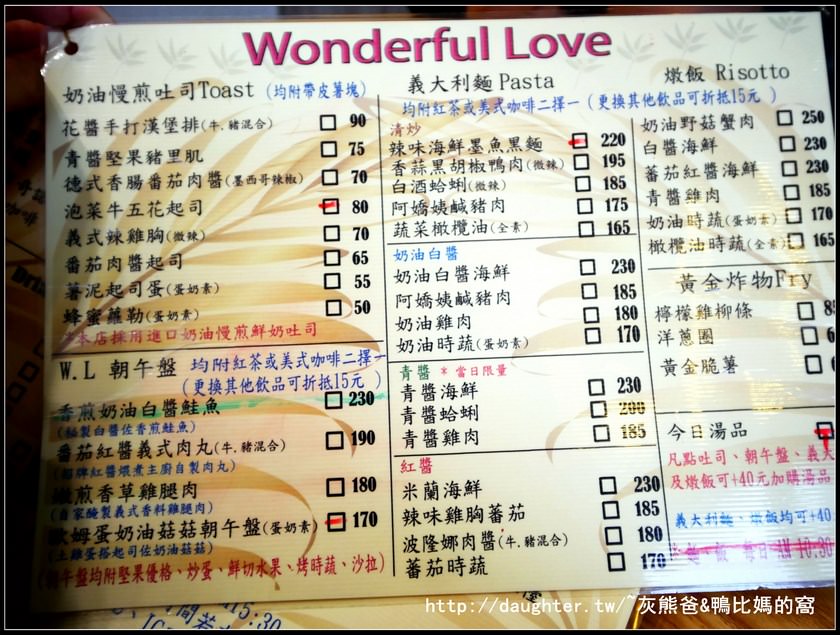 Wonderful Love
奶油慢煎吐司Toast (均附帶皮薯塊)
花醬手打漢堡排(牛.豬混合) 90
青醬堅果豬里肌 75
德式香腸番茄肉醬(墨西哥辣椒) 70
泡菜牛五花起司 80
義式辣雞胸(微辣) 70
番茄肉醬起司 65
薯泥起司蛋(蛋奶素) 55
蜂蜜蘿勒(蛋奶素) 50
*本店採用進口奶油慢煎鮮奶吐司
W.L 朝午盤 均附紅茶或美式咖啡二擇一
(更換其他飲品可折抵15元 )
香煎奶油白醬鮭魚 230
(秘製白醬佐香煎鮭魚)
番茄紅醬義式肉丸(牛.豬混合) 190
(招牌紅醬煨煮主廚自製肉丸)
嫩煎香草雞腿肉 180
(自家醃製義式香料雞腿肉)
歐姆蛋奶油菇菇朝午盤(蛋奶素) 170
(土雞蛋搭起司佐奶油菇菇)
(朝午盤均附堅果優格、炒蛋、鮮切水果、烤時蔬、沙拉)
義大利麵 Pasta
均附紅茶或美式咖啡二擇一 (更換其他飲品可折抵15元 )
清炒
辣味海鮮墨魚黑麵 220
香蒜黑胡椒鴨肉(微辣) 195
白酒蛤蜊(微辣) 185
阿嬌姨鹹豬肉 175
蔬菜橄欖油(全素) 165
奶油白醬
奶油白醬海鮮 230
阿嬌姨鹹豬肉 185
奶油雞肉 180
奶油時蔬(蛋奶素) 170
青醬 * 當日限量
青醬海鮮 230
青醬蛤蜊 200
青醬雞肉 185
紅醬
米蘭海鮮 230
辣味雞胸番茄 185
波隆娜肉醬(牛.豬混合) 180
番茄時蔬 170
燉飯 Risotto
奶油野菇蟹肉 250
白醬海鮮 230
番茄紅醬海鮮 230
青醬雞肉 185
奶油時蔬(蛋奶素) 170
橄欖油時蔬(全素) 165
黃金炸物Fry
檸檬雞柳條
洋蔥圈
黃金脆薯
今日湯品
凡點吐司、朝午盤、義大
及燉飯可+40元加購湯品
義大利麵、燉飯均可+40
15:30
http://daughter.tw/~灰熊爸&鴨比媽的窩